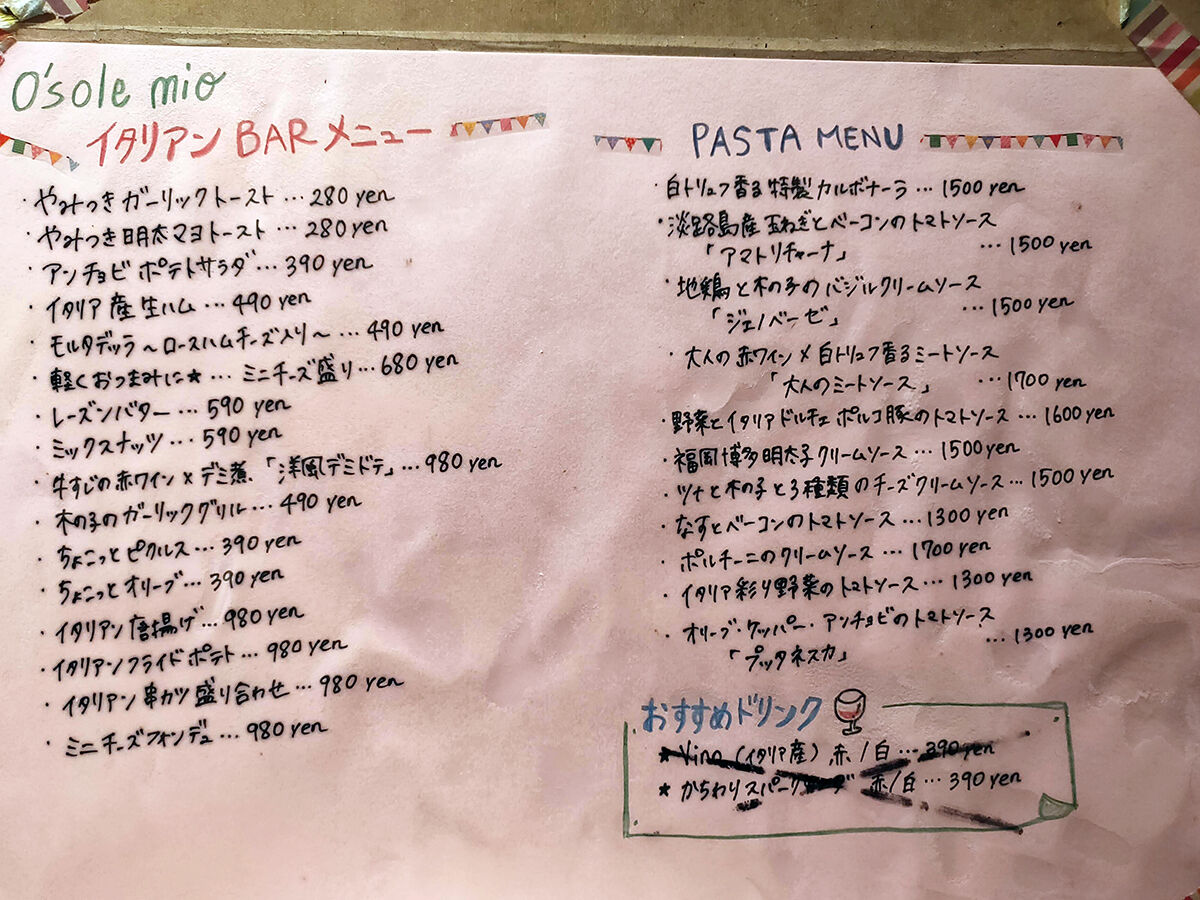 O'sole mio
イタリアン BAR メニュー
・やみつきガーリックトースト … 280 yen
・やみつき明太マヨトースト … 280 yen
・アンチョビポテトサラダ … 390 yen
・イタリア産生ハム … 490 yen
・モルタデッラ～ロースハムチーズ入り～ … 490 yen
・軽くおつまみに★… ミニチーズ盛り … 680 yen
・レーズンバター … 590 yen
・ミックスナッツ … 590 yen
・牛すじの赤ワイン×デミ煮、「洋風デミドテ」… 980 yen
・木の子のガーリックグリル … 490 yen
・ちょこっとピクルス … 390 yen
・ちょこっとオリーブ … 390 yen
・イタリアン唐揚げ … 980 yen
・イタリアンフライドポテト … 980 yen
・イタリアン串カツ盛り合わせ … 980 yen
・ミニチーズフォンデュ … 980 yen
PASTA MENU
・白トリュフ香る特製カルボナーラ … 1500 yen
・淡路島産玉ねぎとベーコンのトマトソース
「アマトリチャーナ」 … 1500 yen
・地鶏と木の子のバジルクリームソース
「ジェノベーゼ」 … 1500 yen
・大人の赤ワイン×白トリュフ香るミートソース
「大人のミートソース」 … 1700 yen
・野菜とイタリアドルチェポルコ豚のトマトソース … 1600 yen
・福岡博多明太子クリームソース … 1500 yen
・ツナと木の子と3種類のチーズクリームソース … 1500 yen
・なすとベーコンのトマトソース … 1300 yen
・ポルチーニのクリームソース … 1700 yen
・イタリア彩り野菜のトマトソース … 1300 yen
・オリーブ・ケッパー・アンチョビのトマトソース
「プッタネスカ」 … 1300 yen
おすすめドリンク
★ Vino (イタリア産) 赤/白 … 390 yen
★ かちわり 赤/白 … 390 yen